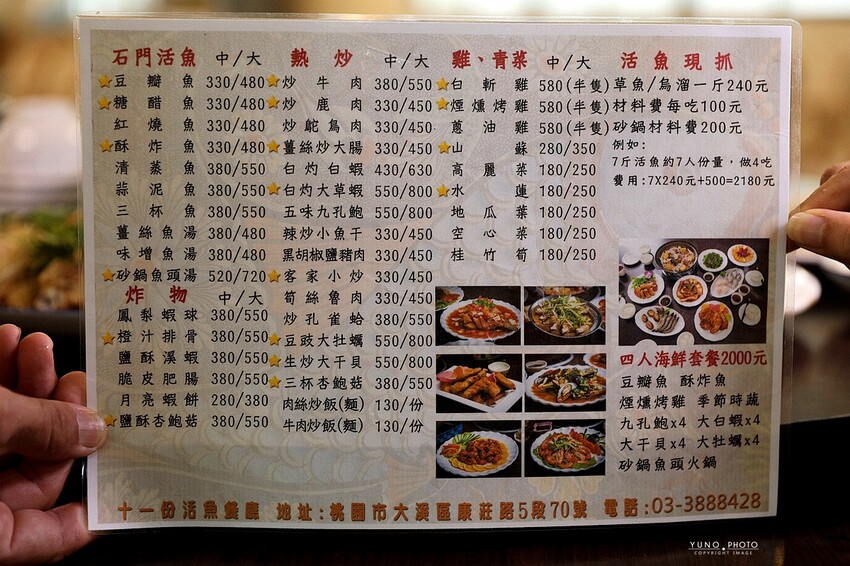 石門活魚 中/大
★豆瓣魚 330/480
★糖醋魚 330/480
紅燒魚 330/480
★酥炸魚 330/480
清蒸魚 380/550
蒜泥魚 380/550
三杯魚 380/550
薑絲魚湯 380/480
味增魚湯 380/480
★砂鍋魚頭湯 520/720
炸物 中/大
鳳梨蝦球 380/550
★橙汁排骨 380/550
鹽酥溪蝦 380/550
脆皮肥腸 380/550
月亮蝦餅 280/380
★鹽酥杏鮑菇 380/550
熱炒 中/大
★炒牛肉 380/550
★炒鹿肉 330/450
炒鴕鳥肉 330/450
★薑絲炒大腸 330/450
白灼白蝦 430/630
★白灼大草蝦 550/800
五味九孔鮑 550/800
辣炒小魚干 330/450
黑胡椒鹽豬肉 330/450
★客家小炒 330/450
筍絲魯肉 330/450
炒孔雀蛤 380/550
★豆豉大牡蠣 550/800
★生炒大干貝 550/800
★三杯杏鮑菇 380/550
肉絲炒飯(麵) 130/份
牛肉炒飯(麵) 130/份
雞、青菜 中/大
★白斬雞 580(半隻)
★煙燻烤雞 580(半隻)
蔥油雞 580(半隻)
★山蘇 280/350
高麗菜 180/250
★水蓮 180/250
地瓜葉 180/250
空心菜 180/250
桂竹筍 180/250
活魚現抓
草魚/烏溜一斤240元
材料費每吃100元
砂鍋材料費200元
例如:
7斤活魚約7人份量，做4吃
費用:7X240元+500=2180元
四人海鮮套餐2000元
豆瓣魚 酥炸魚
煙燻烤雞 季節時蔬
九孔鮑x4 大白蝦x4
大干貝x4 大牡蠣x4
砂鍋魚頭火鍋
十一份活魚餐廳 地址:桃園市大溪區康莊路5段70號 電話:03-3888428
YUNO PHOTO
COPYRIGHT IMAGE